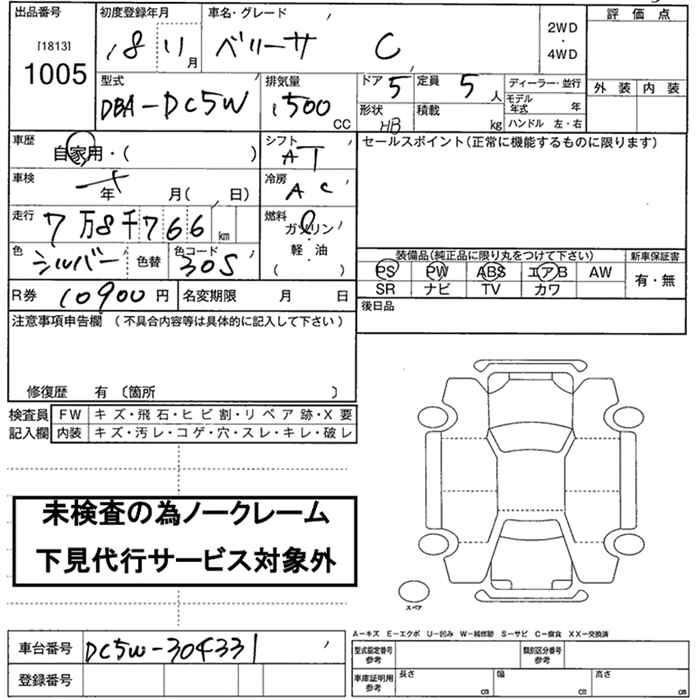 出品番号 初度登録年月 車名・グレード 評価点
[1813] 18 11月 ベリーサ C 2WD・4WD
1005
型式 排気量 ドア 5 定員 5人 ディーラー・並行 外装 内装
DBA-DC5W 1500CC 形状 HB 積載 kg モデル年式 年
ハンドル 左・右
車歴 自家用・( ) シフト AT セールスポイント(正常に機能するものに限ります)
車検 年 月( , 日) 冷房 AC
走行 7万8千766km 燃料 ガソリン
色 シルバー 色替 色コード 30S 軽・油 ( )
装備品(純正品に限り丸をつけて下さい) 新車保証書
PS PW ABS エアB AW 有・無
SR ナビ TV カワ
R券 10900円 名変期限 月 日 後日品
注意事項申告欄 (不具合内容等は具体的に記入して下さい)
修復歴 有 〔箇所 〕
検査員 FW キズ・飛石・ヒビ割・リペア跡・X要
記入欄 内装 キズ・汚レ・コゲ・穴・スレ・キレ・破レ
未検査の為ノークレーム
下見代行サービス対象外
スペア
A-キズ E-エクボ U-凹み W-補修跡 S-サビ C-腐食 XX-交換済
車台番号 DC5W-304331 型式指定番号 参考 類別区分番号 参考
登録番号 車庫証明用 参考 長さ cm 幅 cm 高さ cm